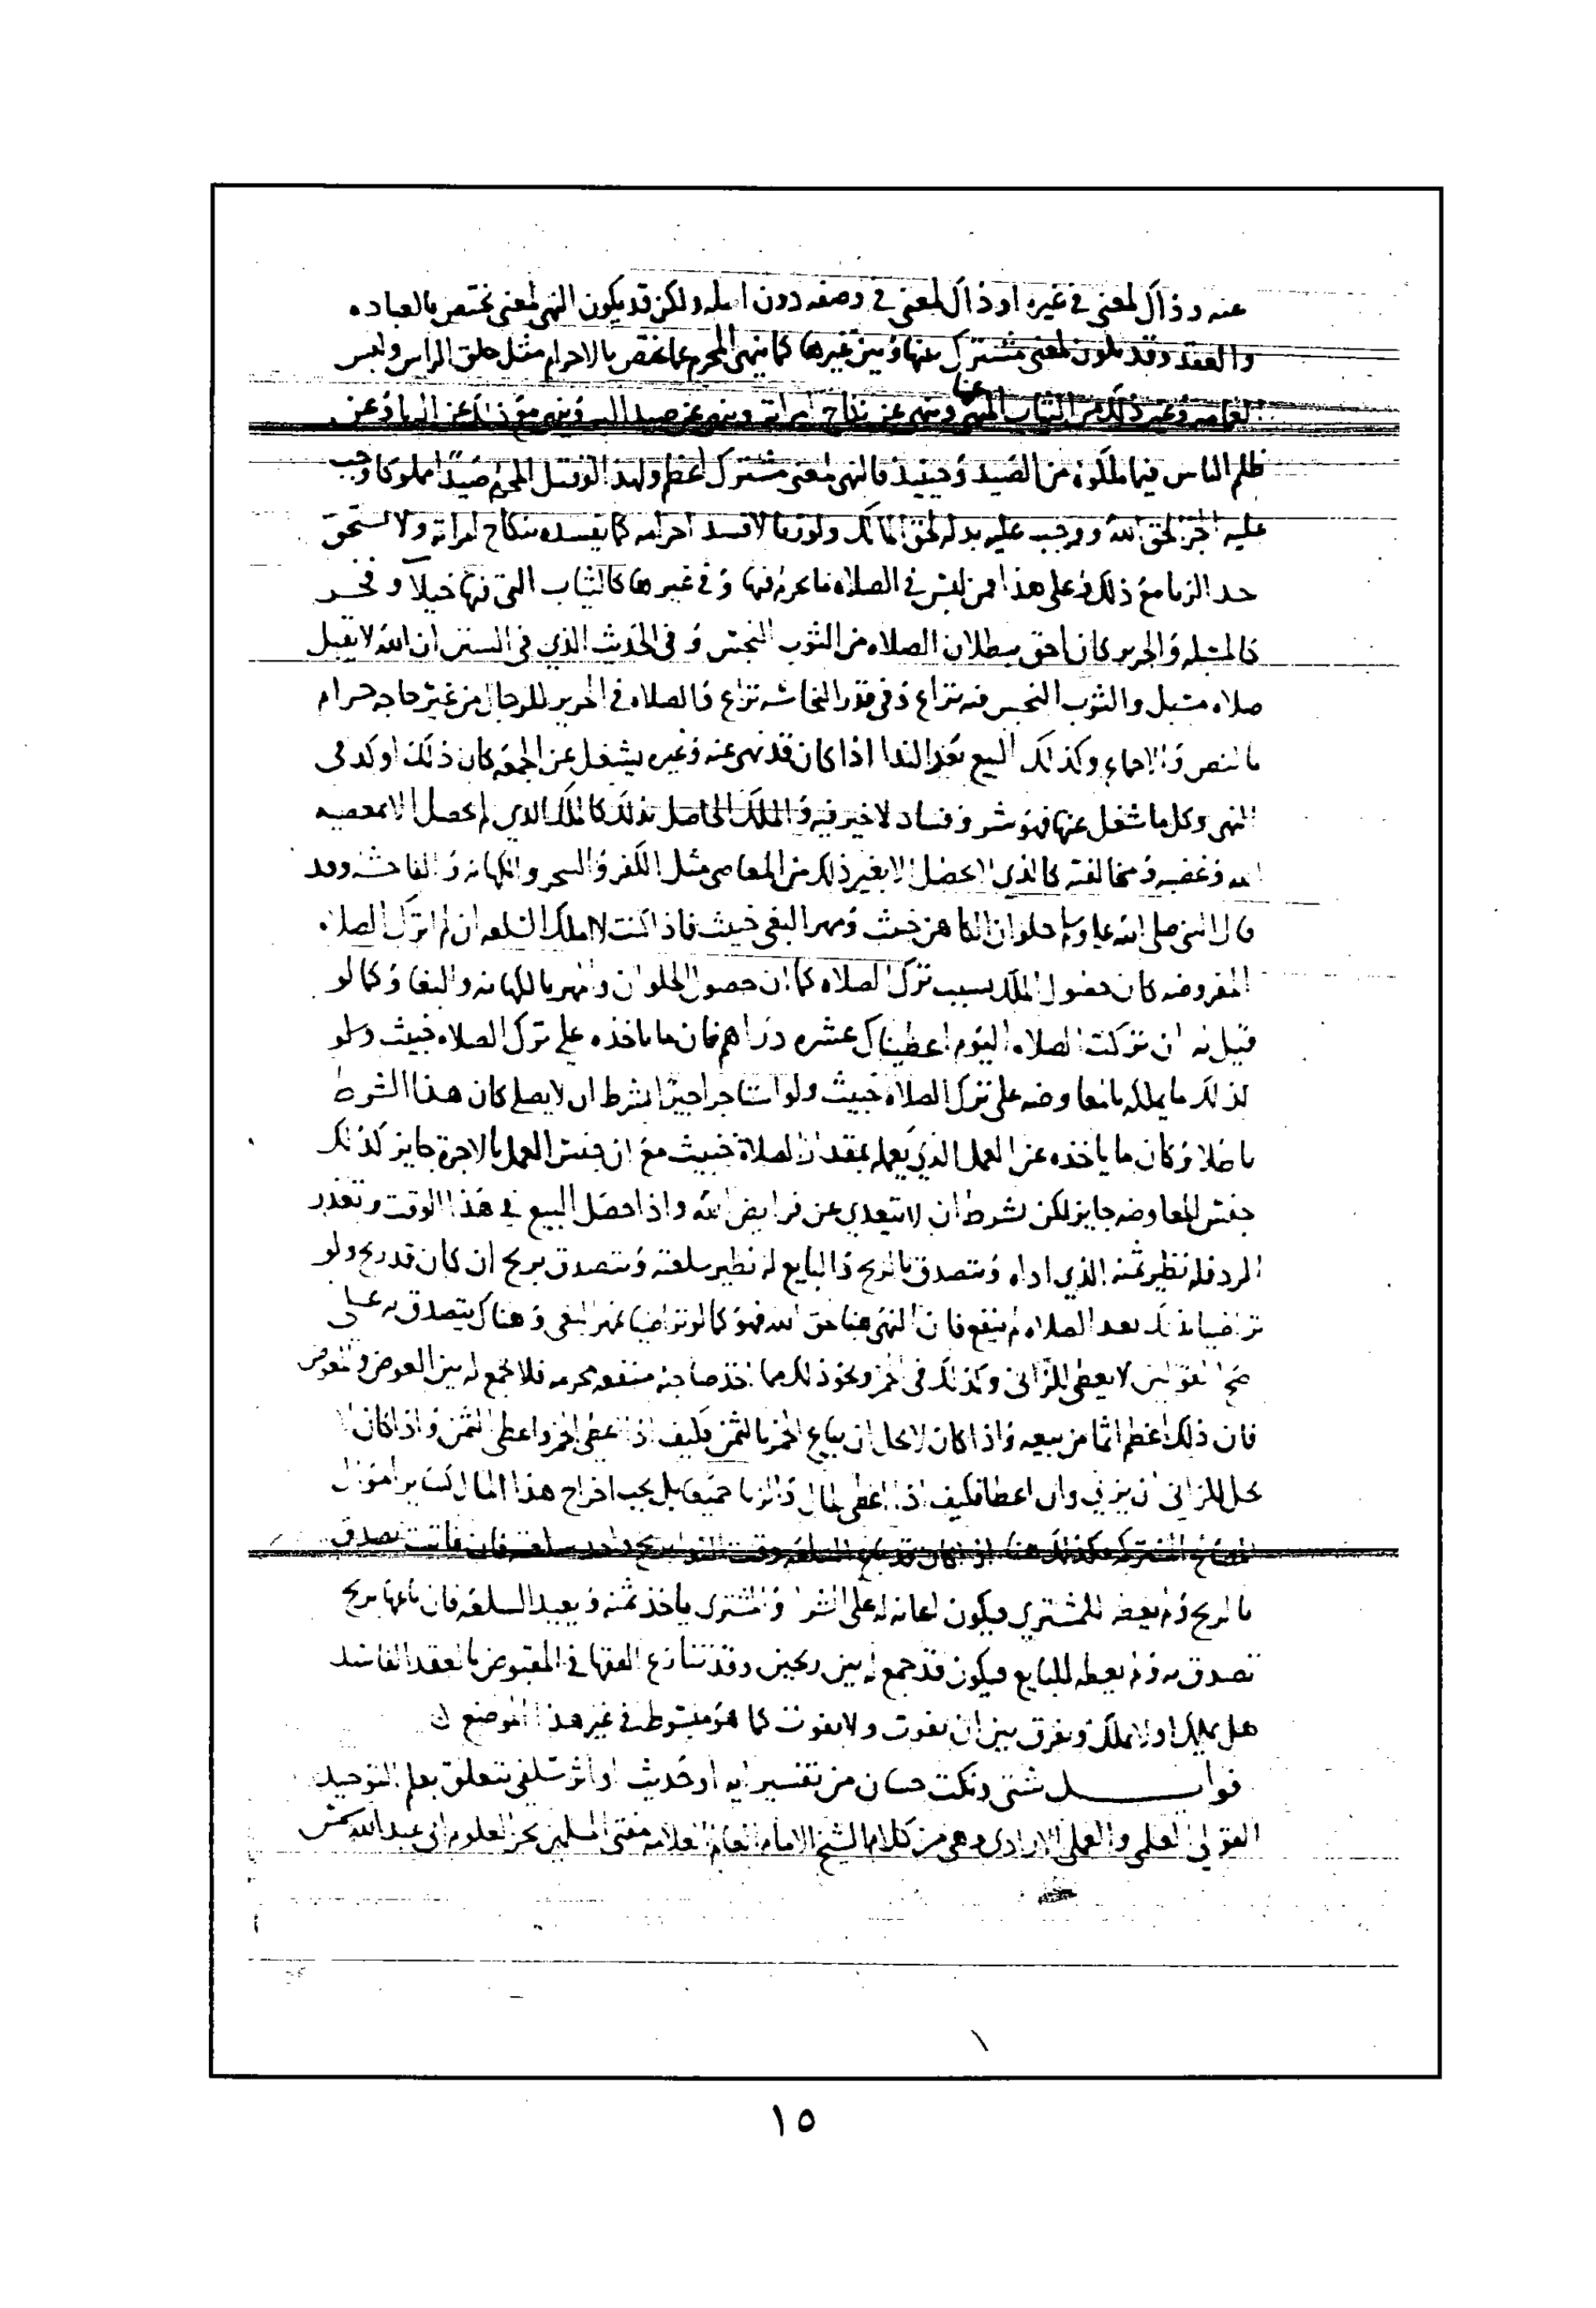 عنه وذاك لمعنى في غيره او ذاك لمعنى في وصفه دون اصله ولكن قد يكون النهى لمعنى يختص بالعباده
والعقد وقد يكون لمعنى مشترك بينها وبين غيرها كما ينهى المحرم عما يختص بالاحرام مثل حلق الراس ولبس
العمامه وغير ذلك من الثياب المنهى عنها وينهى عن نكاح امراته وينهى عن صيد البر وينهى مع ذلك عن الربا وعن
ظلم الناس فيما ملكوه من الصيد وحينيذ فالنهى لمعنى مشترك اعظم ولهذا لو قتل المحرم صيدا مملوكا وجب
عليه الجزا لحق الله ووجب عليه بدله لحق المالك ولو زنا لافسد احرامه كما يفسده بنكاح امراته ولاستحق
حد الزنا مع ذلك وعلى هذا فمن لبس في الصلاه ما يحرم فيها وفي غيرها كالثياب التي فيها خيلا وفخر
كالمسبله والحرير كان احق ببطلان الصلاه من الثوب النجس وفي الحديث الذي في السنن ان الله لا يقبل
صلاه مسبل والثوب النجس فيه نزاع وفي قدر النجاسه نزاع والصلاه في الحرير للرجال من غير حاجه حرام
بالنص والاجماع وكذلك البيع بعد الندا اذا كان قد نهى عنه وغيره يشغل عن الجمعه كان ذلك اوكد في
النهى وكل ما شغل عنها فهو شر وفساد لا خير فيه والملك الحاصل بذلك كالملك الذي لم يحصل الا بمعصيه
الله وغضبه ومخالفته كالذي لا يحصل الا بغير ذلك من المعاصي مثل الكفر والسحر والكهانه والفاحشه وقد
قال النبي صلى الله عليه وسلم حلوان الكاهن خبيث ومهر البغي خبيث فاذا كنت لا املك السلعه ان لم اترك الصلاه
المفروضه كان حصول الملك بسبب ترك الصلاه كما ان حصول الحلوان والمهر بالكهانه والبغا وكما لو
قيل له ان تركت الصلاه اليوم اعطيناك عشره دراهم فان ما ياخذه على ترك الصلاه خبيث ولو
كذلك ما يملكه بالمعاوضه على ترك الصلاه خبيث ولو استاجر اجيرا بشرط ان لا يصلي كان هذا الشرط
باطلا وكان ما ياخذه عن العمل الذي يعمله بمقدار الصلاة خبيث مع ان جنس العمل بالاجرة جايز كذلك
جنس المعاوضه جايز لكن بشرط ان لا يتعدى عن فرايض الله واذا حصل البيع في هذا الوقت وتعذر
الرد فله نظير ثمنه الذي اداه ويتصدق بالربح والبايع له نظير سلعته ويتصدق بربح ان كان قد ربح ولو
تراضيا بذلك بعد الصلاه لم ينفع فان النهى هنا حق الله فهو كما لو تراضيا بمهر البغي وهناك يتصدق به على
اصح القولين لا يعطى للزاني وكذلك في الخمر ونحو ذلك مما اخذ صاحبه منفعه محرمه فلا يجمع له بين العوض والمعوض
فان ذلك اعظم اثما من بيعه واذا كان لا يحل ان يباع الخمر بالثمن فكيف اذا اعطي الخمر واعطي الثمن واذا كان لا
يحل للزاني ان يزني وان اعطا فكيف اذا اعطي المال والزنا جميعا بل يجب اخراج هذا المال كساير اموال
المصالح المشتركه فكذلك هنا اذا كان قد باع السلعه وقت الندا بربح واخذ سلعته فان فاتت تصدق
بالربح ولم يعطه للمشتري فيكون اعانه له على الشرا والمشتري ياخذ ثمنه ويعيد السلعه فان باعها بربح
تصدق به ولم يعطه للبايع فيكون قد جمع له بين ربحين وقد تنازع الفقها في المقبوض بالعقد الفاسد
هل يملك او لا يملك ويفرق بين ان يفوت ولا يفوت كما هو مبسوط في غير هذا الموضع
فوايد شتى ونكت حسان من تفسير ايه او حديث او اثر سلفي تتعلق بعلم التوحيد
القولي العلمي والعملي الارادي وهي من كلام الشيخ الامام العالم العلامه مفتي المسلمين بحر العلوم ابي عبد الله شمس
١
١٥